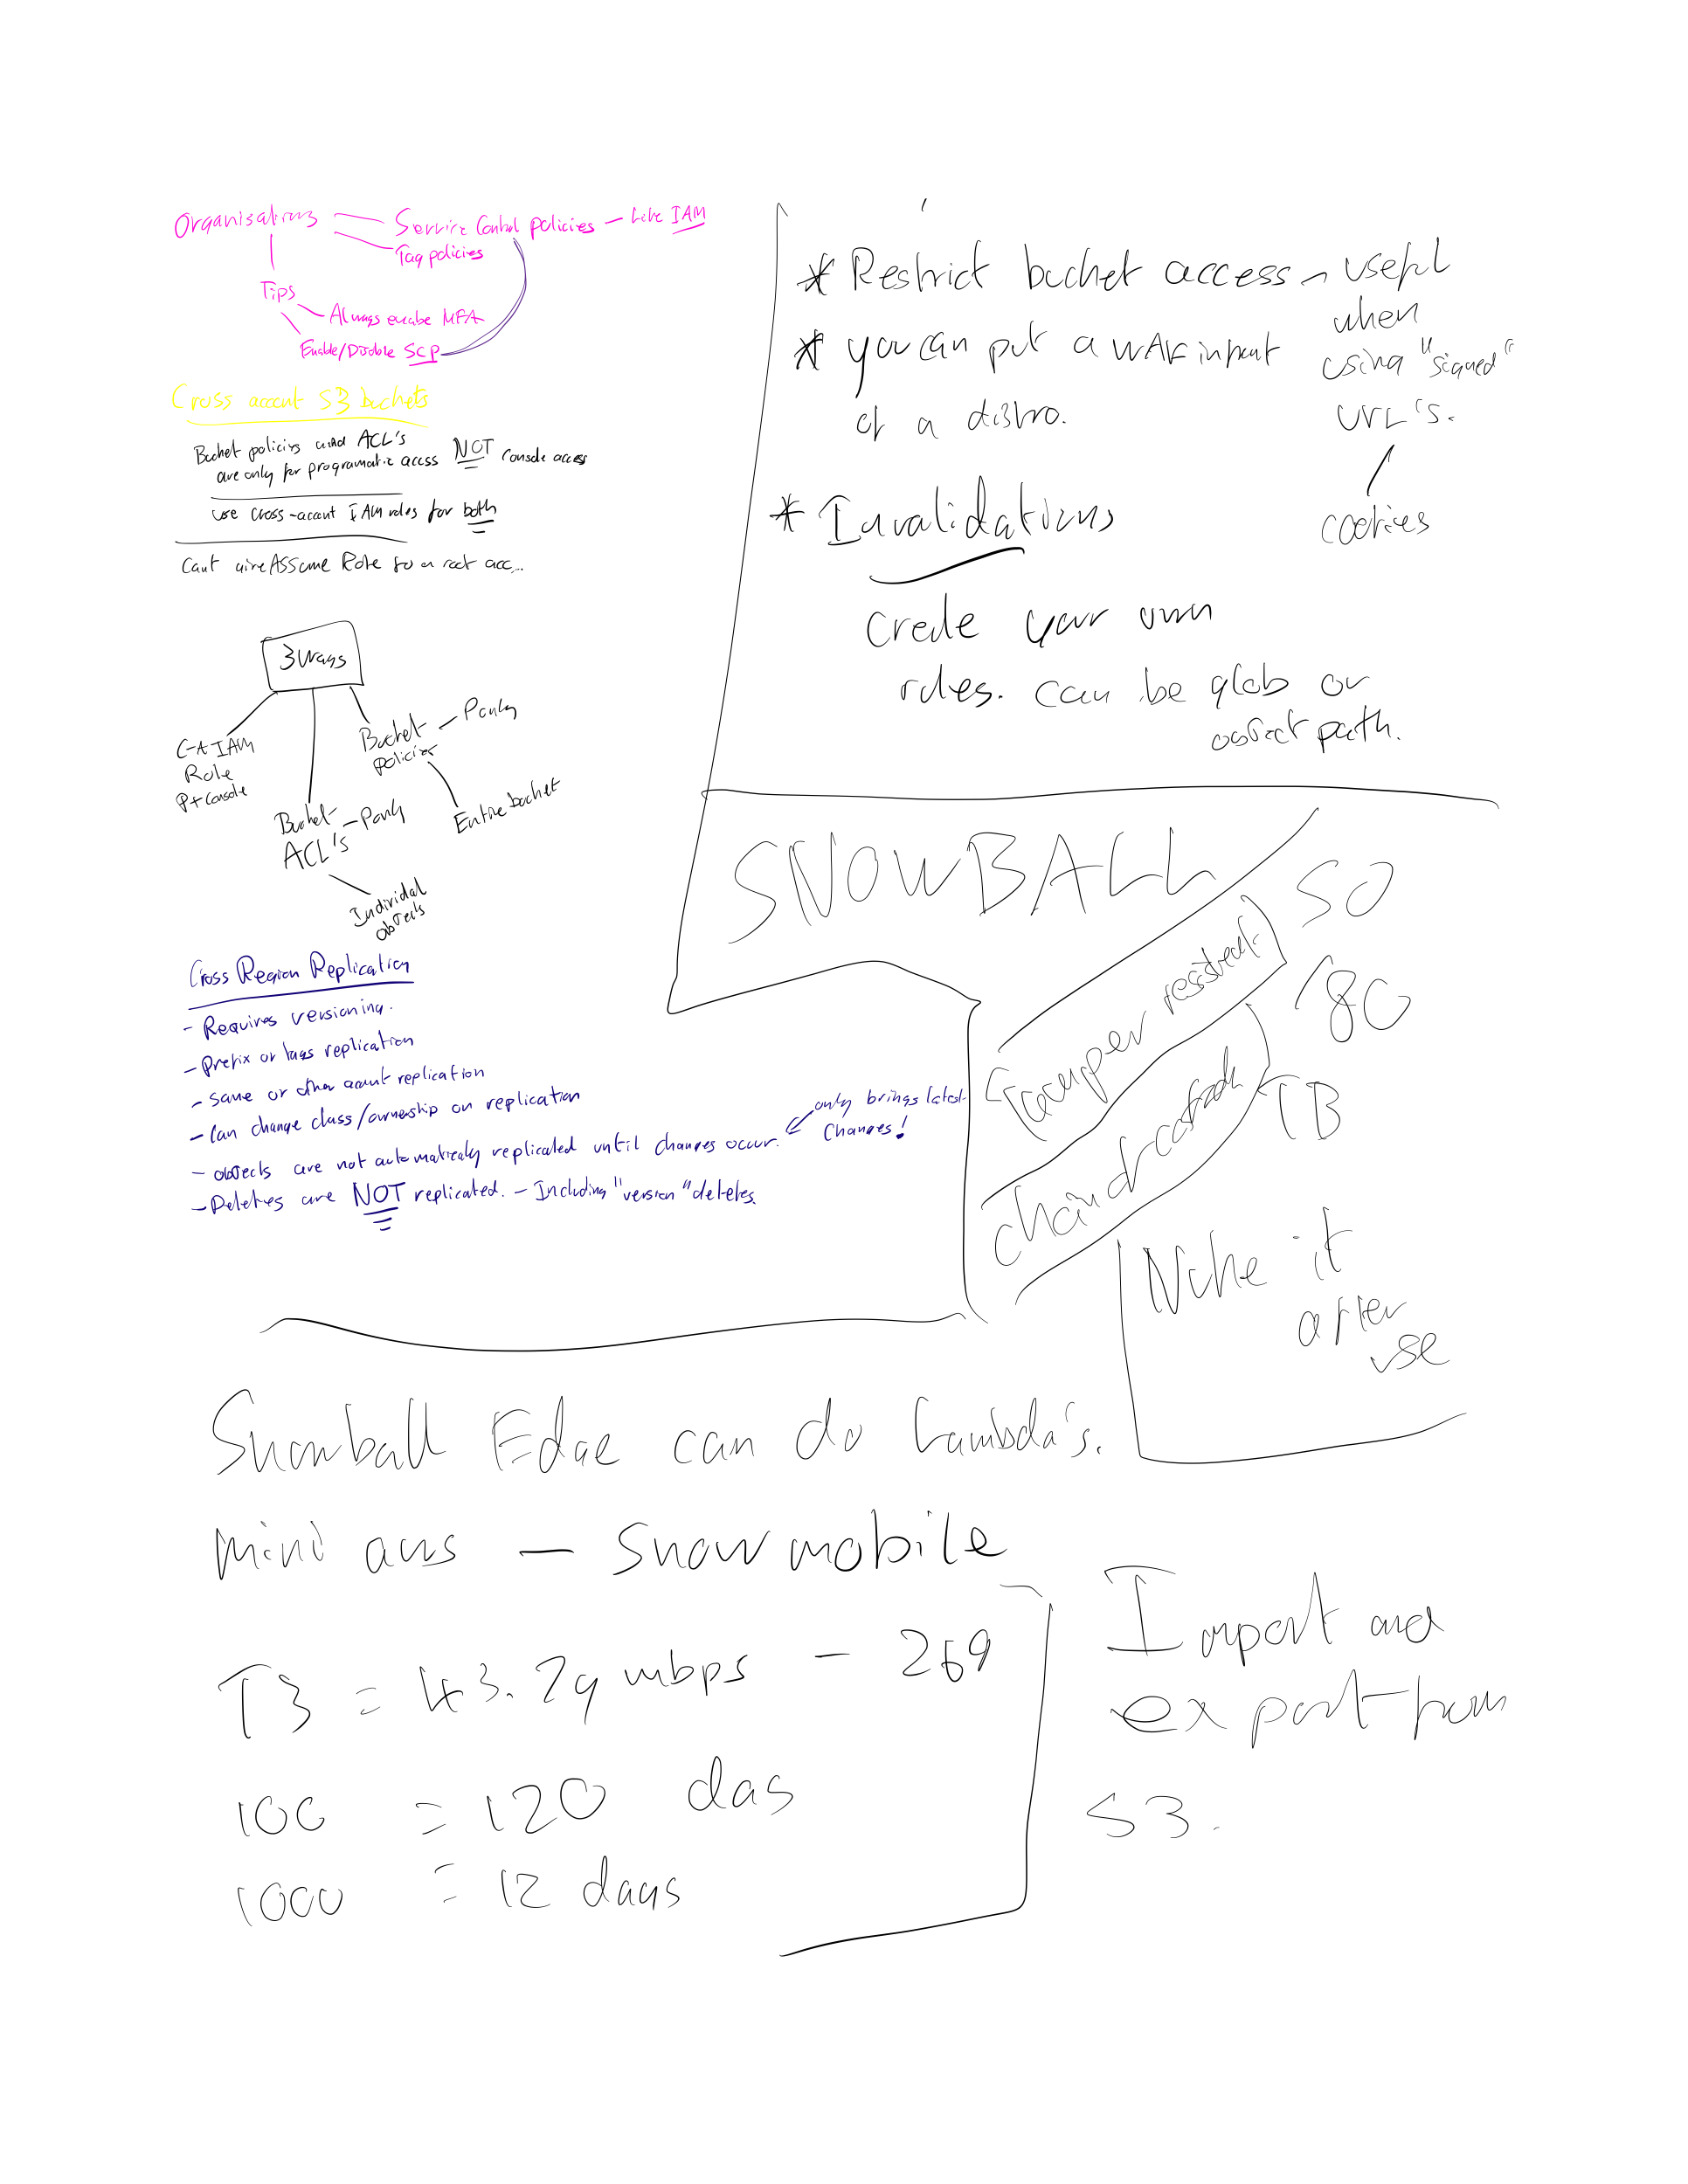 Organisations
Service Control policies - Like IAM
Tag policies
Tips
Always enabe MFA
Enable/Disable SCP
Cross account S3 buckets
Bucket policies and ACL's
are only for programatic access NOT console access
use cross-account IAM roles for both
Cant AssumeRole for a root acc...
3 ways
C-A IAM
Role
P+console
Bucket
ACL's
- Ponly
Individal
objects
Bucket
policies
- Ponly
Entire bucket
Cross Region Replication
- Requires versioning.
- Prefix or tags replication
- same or other account replication
- Can change class/ownership on replication
- objects are not automatically replicated until changes occur.
only brings latest
Changes!
- Deletes are NOT replicated. - Including "version" deletes.
* Restrict bucket access - useful
when
using "signed"
URL's.
cookies
* you can put a WAF in front
of a distro.
* Invalidations
Create your own
rules. can be glob or
object path.
SNOWBALL
50
80
TB
Tamper resistant
chain of custody
Nuke it
after
use
Snowball Edge can do Lambda's.
mini aws - Snowmobile
T3 = 43.79 mbps - 269
100 = 120 das
1000 = 12 days
Import and
export from
S3.